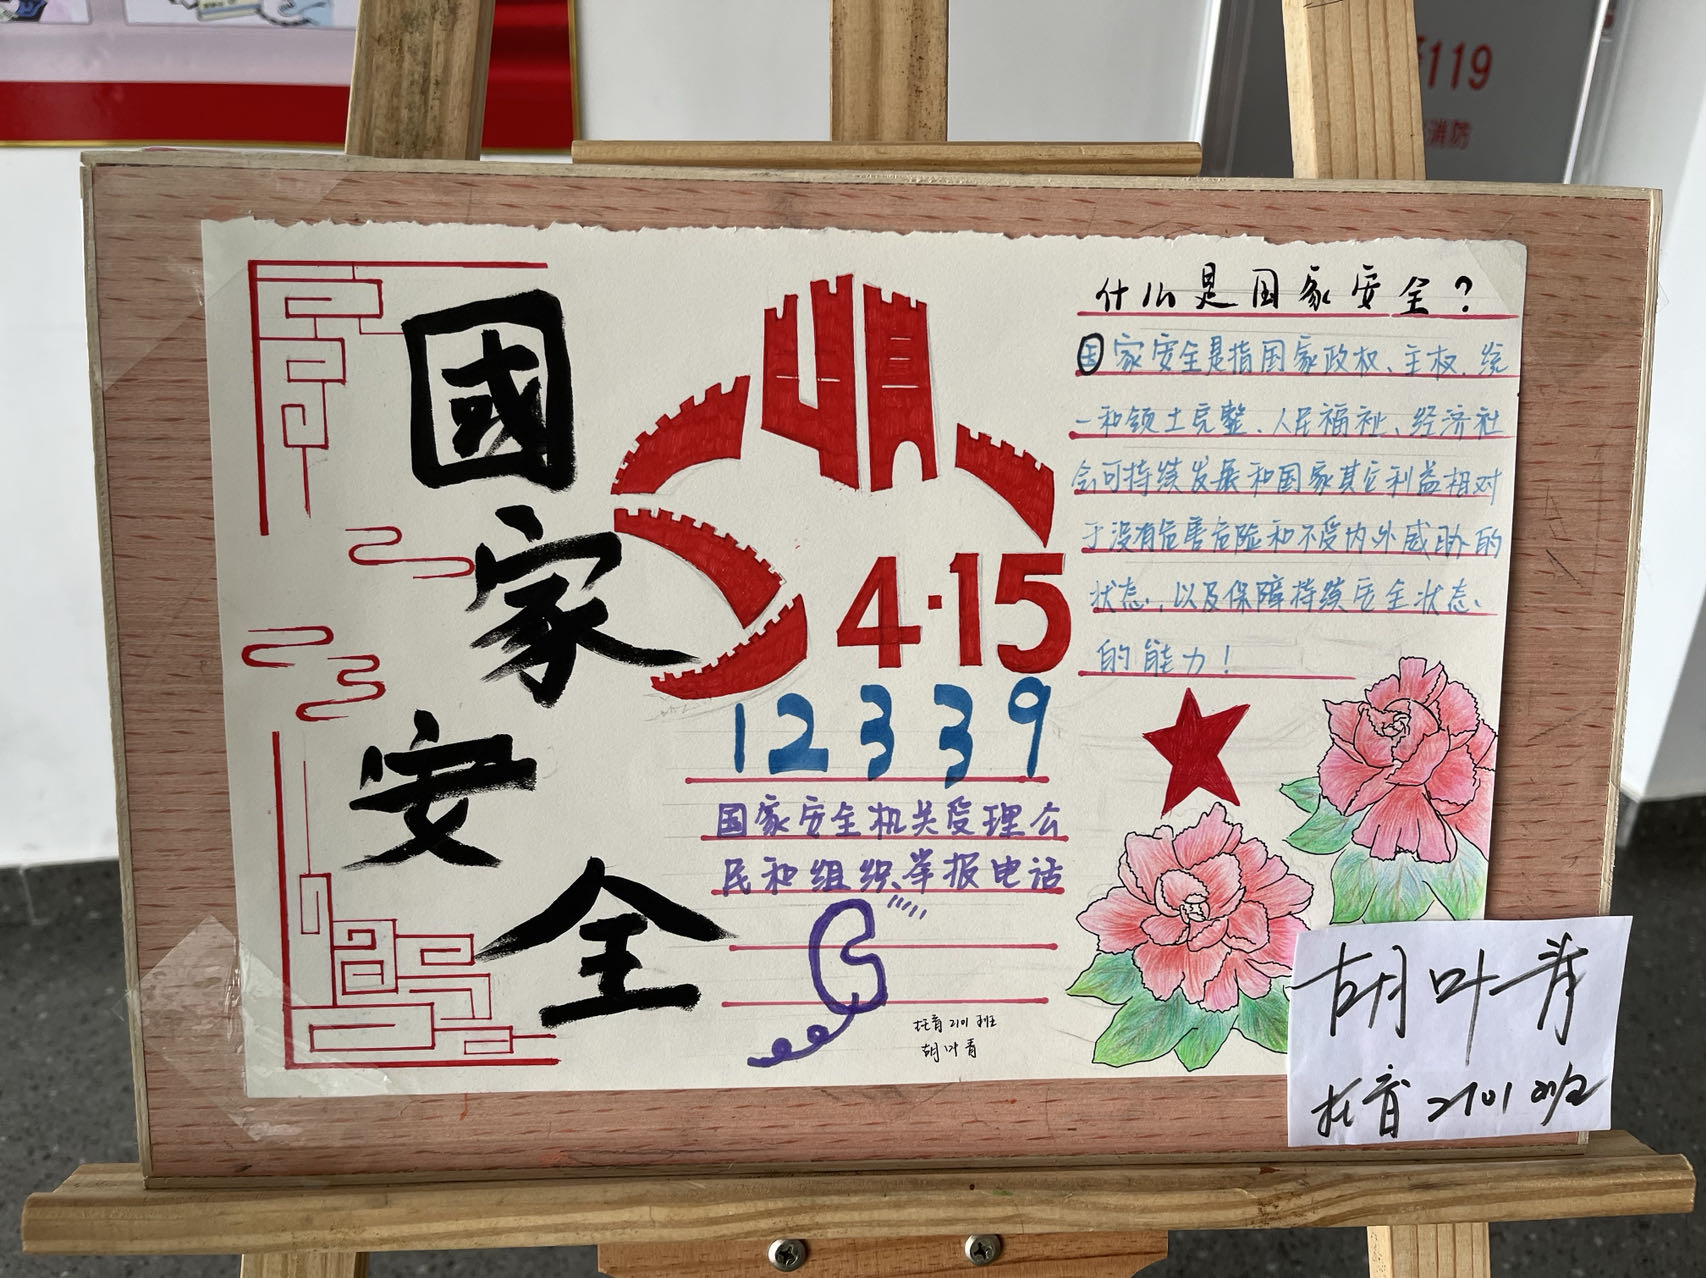 119
消防
國
家
安
全
4·15
12339
国家安全机关受理公
民和组织举报电话
托育2101班
胡叶青
什么是国家安全?
国家安全是指国家政权、主权、统
一和领土完整、人民福祉、经济社
会可持续发展和国家其它利益相对
于没有危害危险和不受内外威胁的
状态,以及保障持续安全状态
的能力!
胡叶青
托育2101班